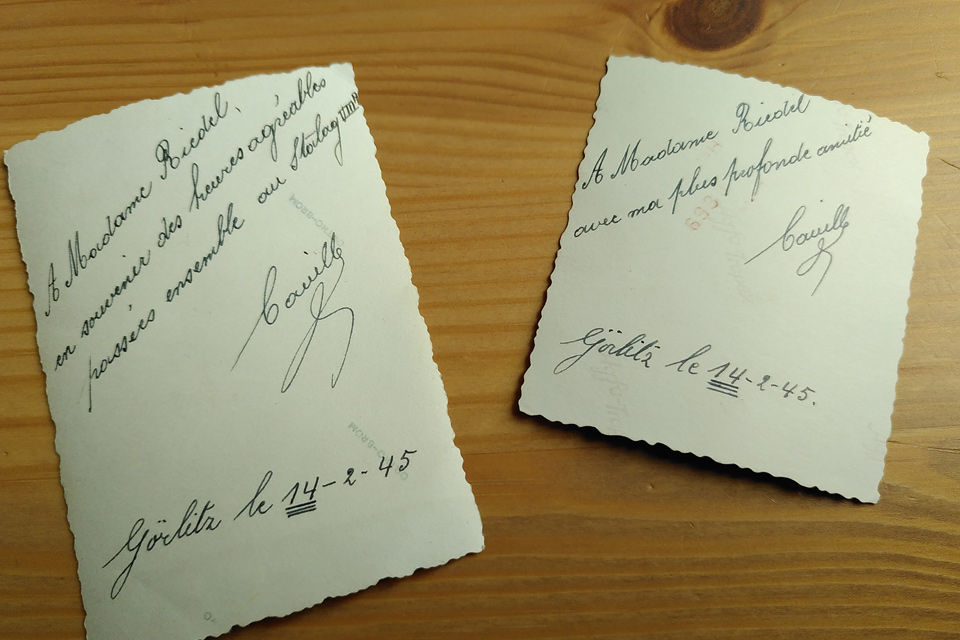 A Madame Riedel,
en souvenir des heures agréables
passées ensemble au Stalag VIIIA
Camille
Görlitz le 14-2-45
A Madame Riedel
avec ma plus profonde amitié
Camille
Görlitz le 14-2-45.